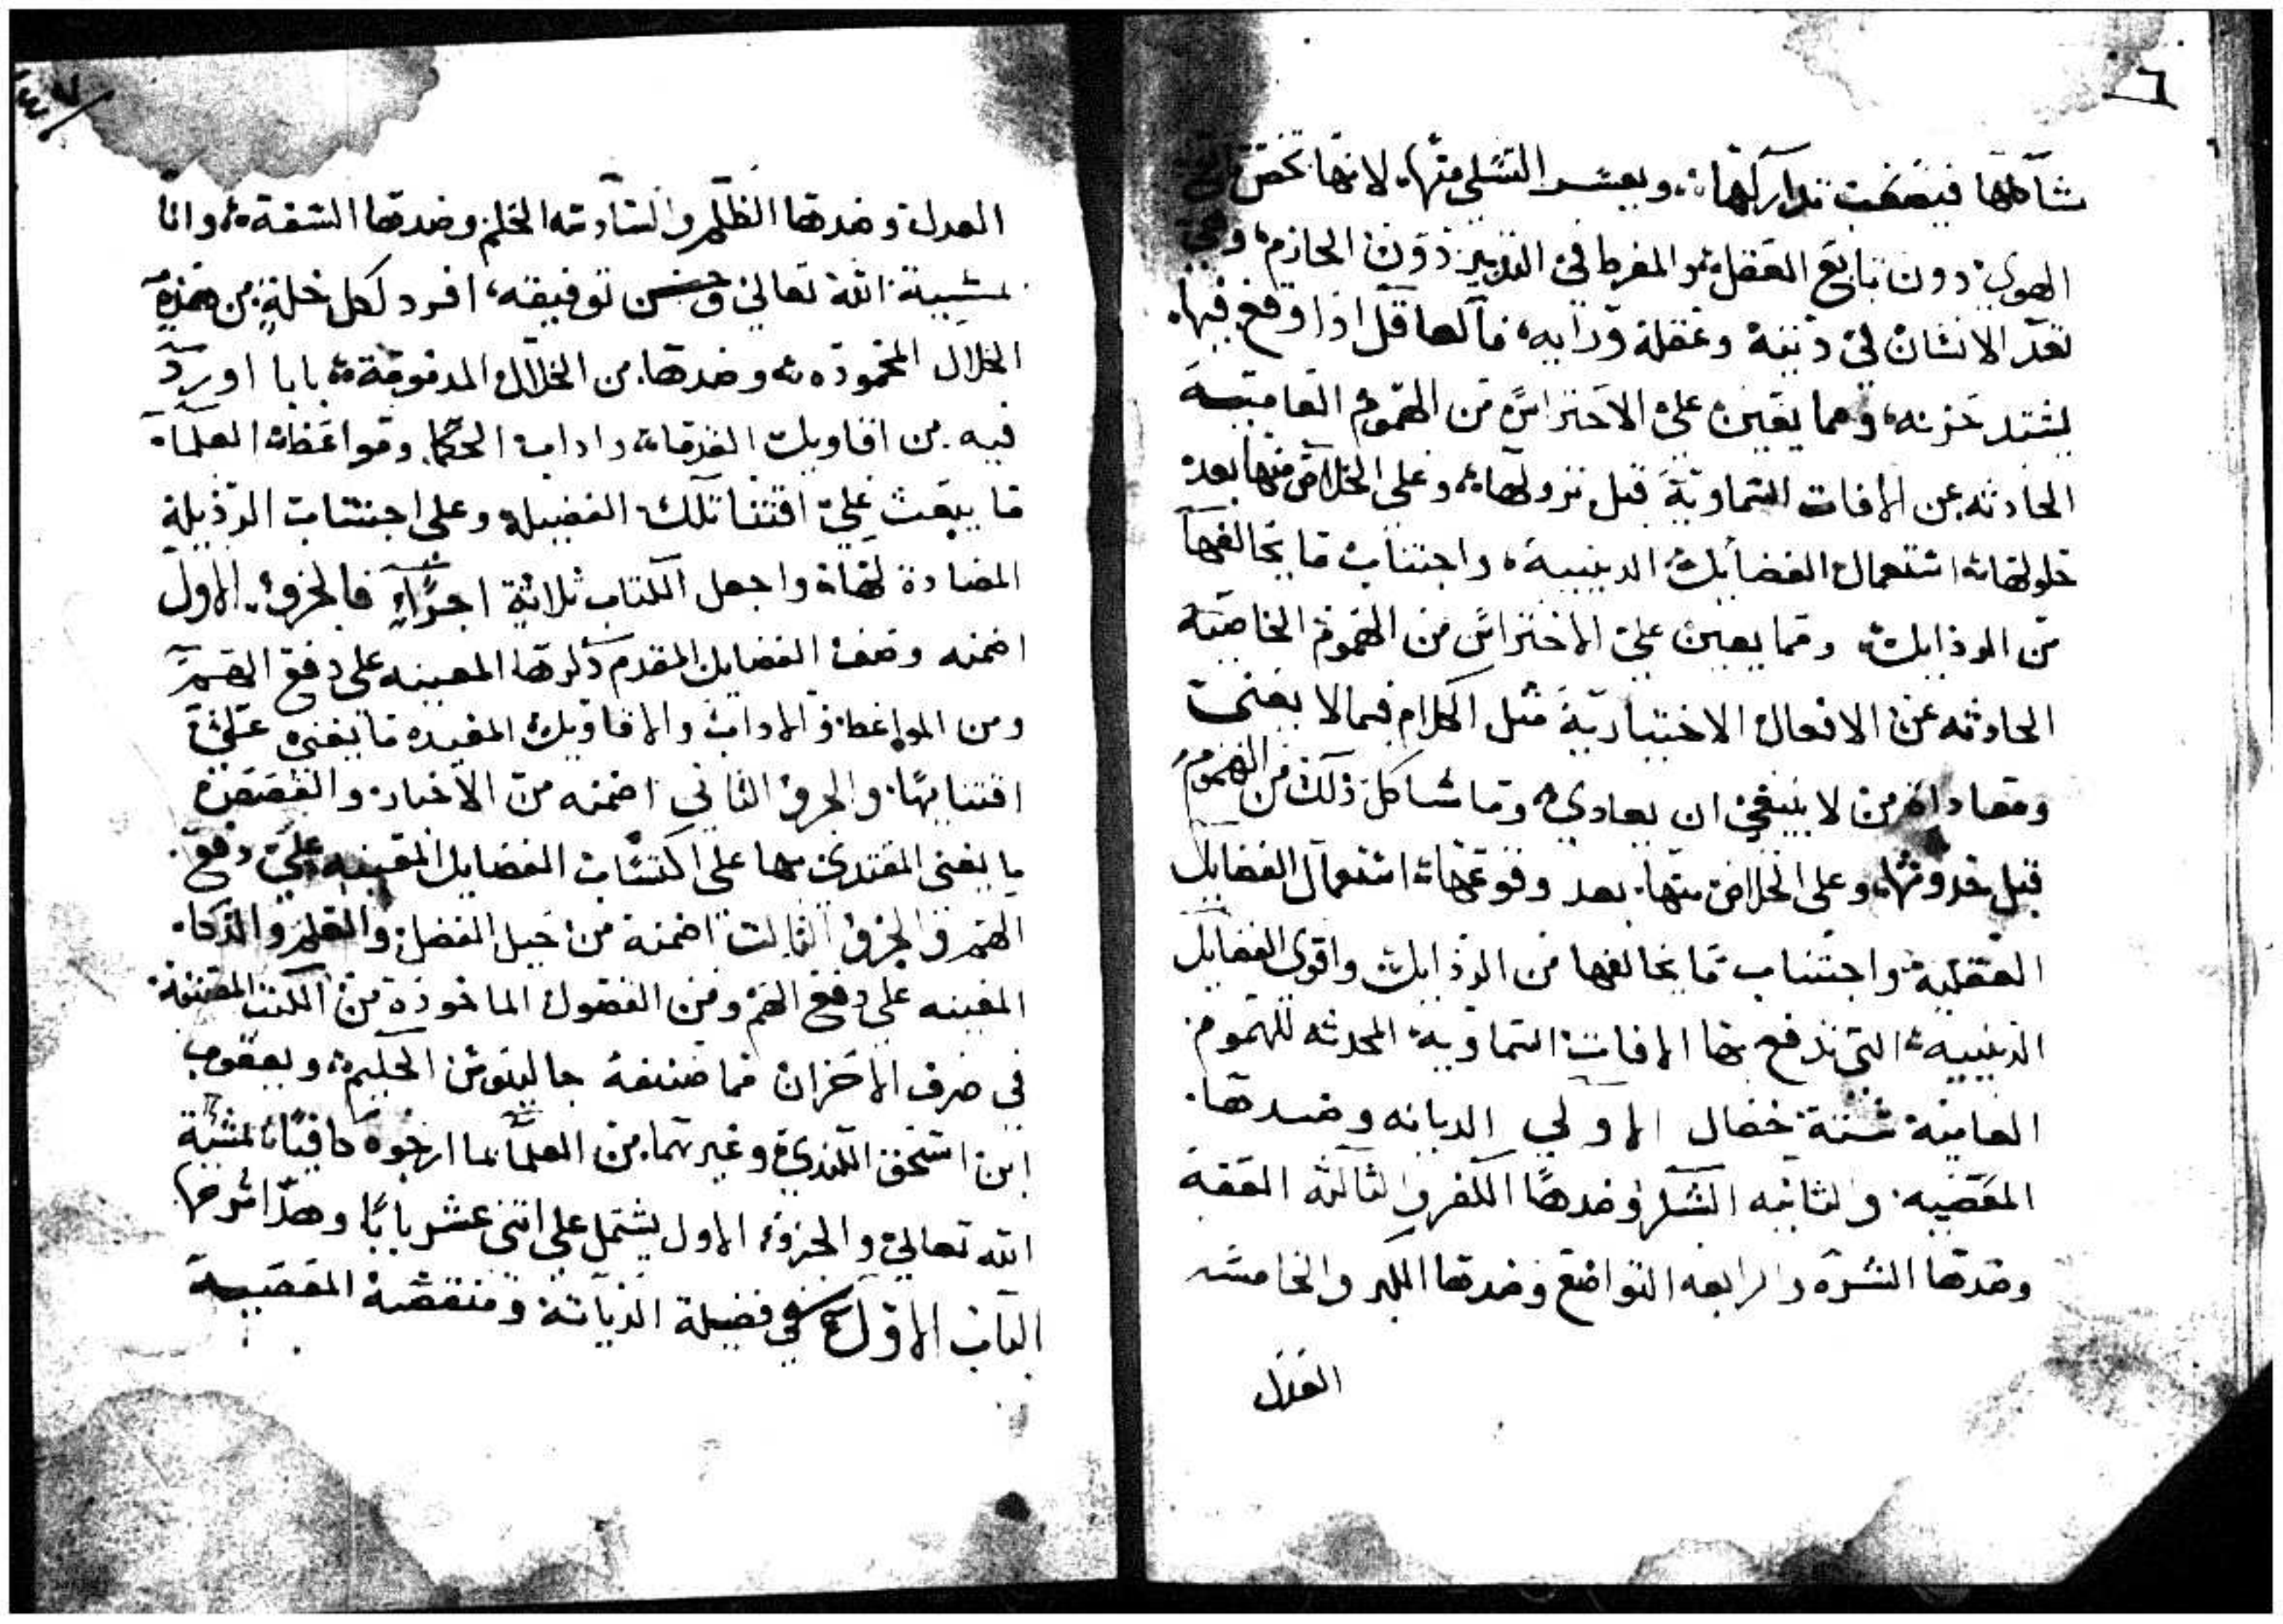 ٦
شاكلها فيصعب تداركها، ويعسر التسلي منها، لانها تخص
الهوي دون تابع العقل، والمفرط في التدبير دون الحازم، وهي
تعد الانسان في دينه وعقله ورايه، فالعاقل اذا وقع فيها،
يشتد حزنه، ومما يعين علي الاحتراس من الهموم العامية
الحادثه عن الافات السماوية قبل نزولها، وعلي الخلاص منها بعد
حلولها، استعمال الفضايل الدينيية، واجتناب ما يخالفها
من الرذايل، ومما يعين علي الاحتراس من الهموم الخاصية
الحادثه عن الافعال الاختيارية مثل الكلام فيما لا يعني
ومعاداة من لا ينبغي ان يعادي، وما شاكل ذلك من الهموم
قبل حدوثها، وعلي الخلاص منها، بعد وقوعها، استعمال الفضايل
العقلية، واجتناب ما يخالفها من الرذايل، واقوي الفضايل
الدينيية، التي تدفع بها الافات السماوية المحدثه للهموم
العامية ستة خصال الاولي الديانه وضدها
المعصيه، والثانيه الشكر وضدها الكفر والثالثه العفة
وضدها الشره والرابعه التواضع وضدها الكبر والخامسه
العدل
٧
العدل وضدها الظلم والسادسه الحلم وضدها السفة، وانا
بمشيية الله تعالي وحسن توفيقه، افرد لكل خلة من هذه
الخلال المحموده، وضدها من الخلال المدمومة، بابا اورد
فيه من اقاويل القدماء واداب الحكما، ومواعظ العلماء
ما يبعث علي اقتنا تلك الفضيله وعلي اجتناب الرذيلة
المضادة لها، واجعل الكتاب ثلاثة اجزاء فالجزو الاول
اضمنه وصف الفضايل المقدم ذكرها المعينه علي دفع الهم
ومن المواعظ والاداب والاقاويل المفيده ما يعني علي
اقتنايها، والجزو الثاني اضمنه من الاخبار والقصص
ما يعني المقتدي بها علي اكتساب الفضايل المعينه علي دفع
الهم والجزو الثالت اضمنه من حيل الفضل والعلم والذكا،
المعينه علي دفع الهم ومن الفصول الماخوذة من الكتب المصنفة
في صرف الاحزان مما صنفه جالينوس الحكيم، ويعقوب
ابن اسحق الكندي وغيرهما من العلما بما ارجوه كافيا بمشية
الله تعالي والجزو الاول يشتمل علي اتني عشر بابا وهذا شرحها
الباب الاول في فضيلة الديانة ومنقصة المعصية